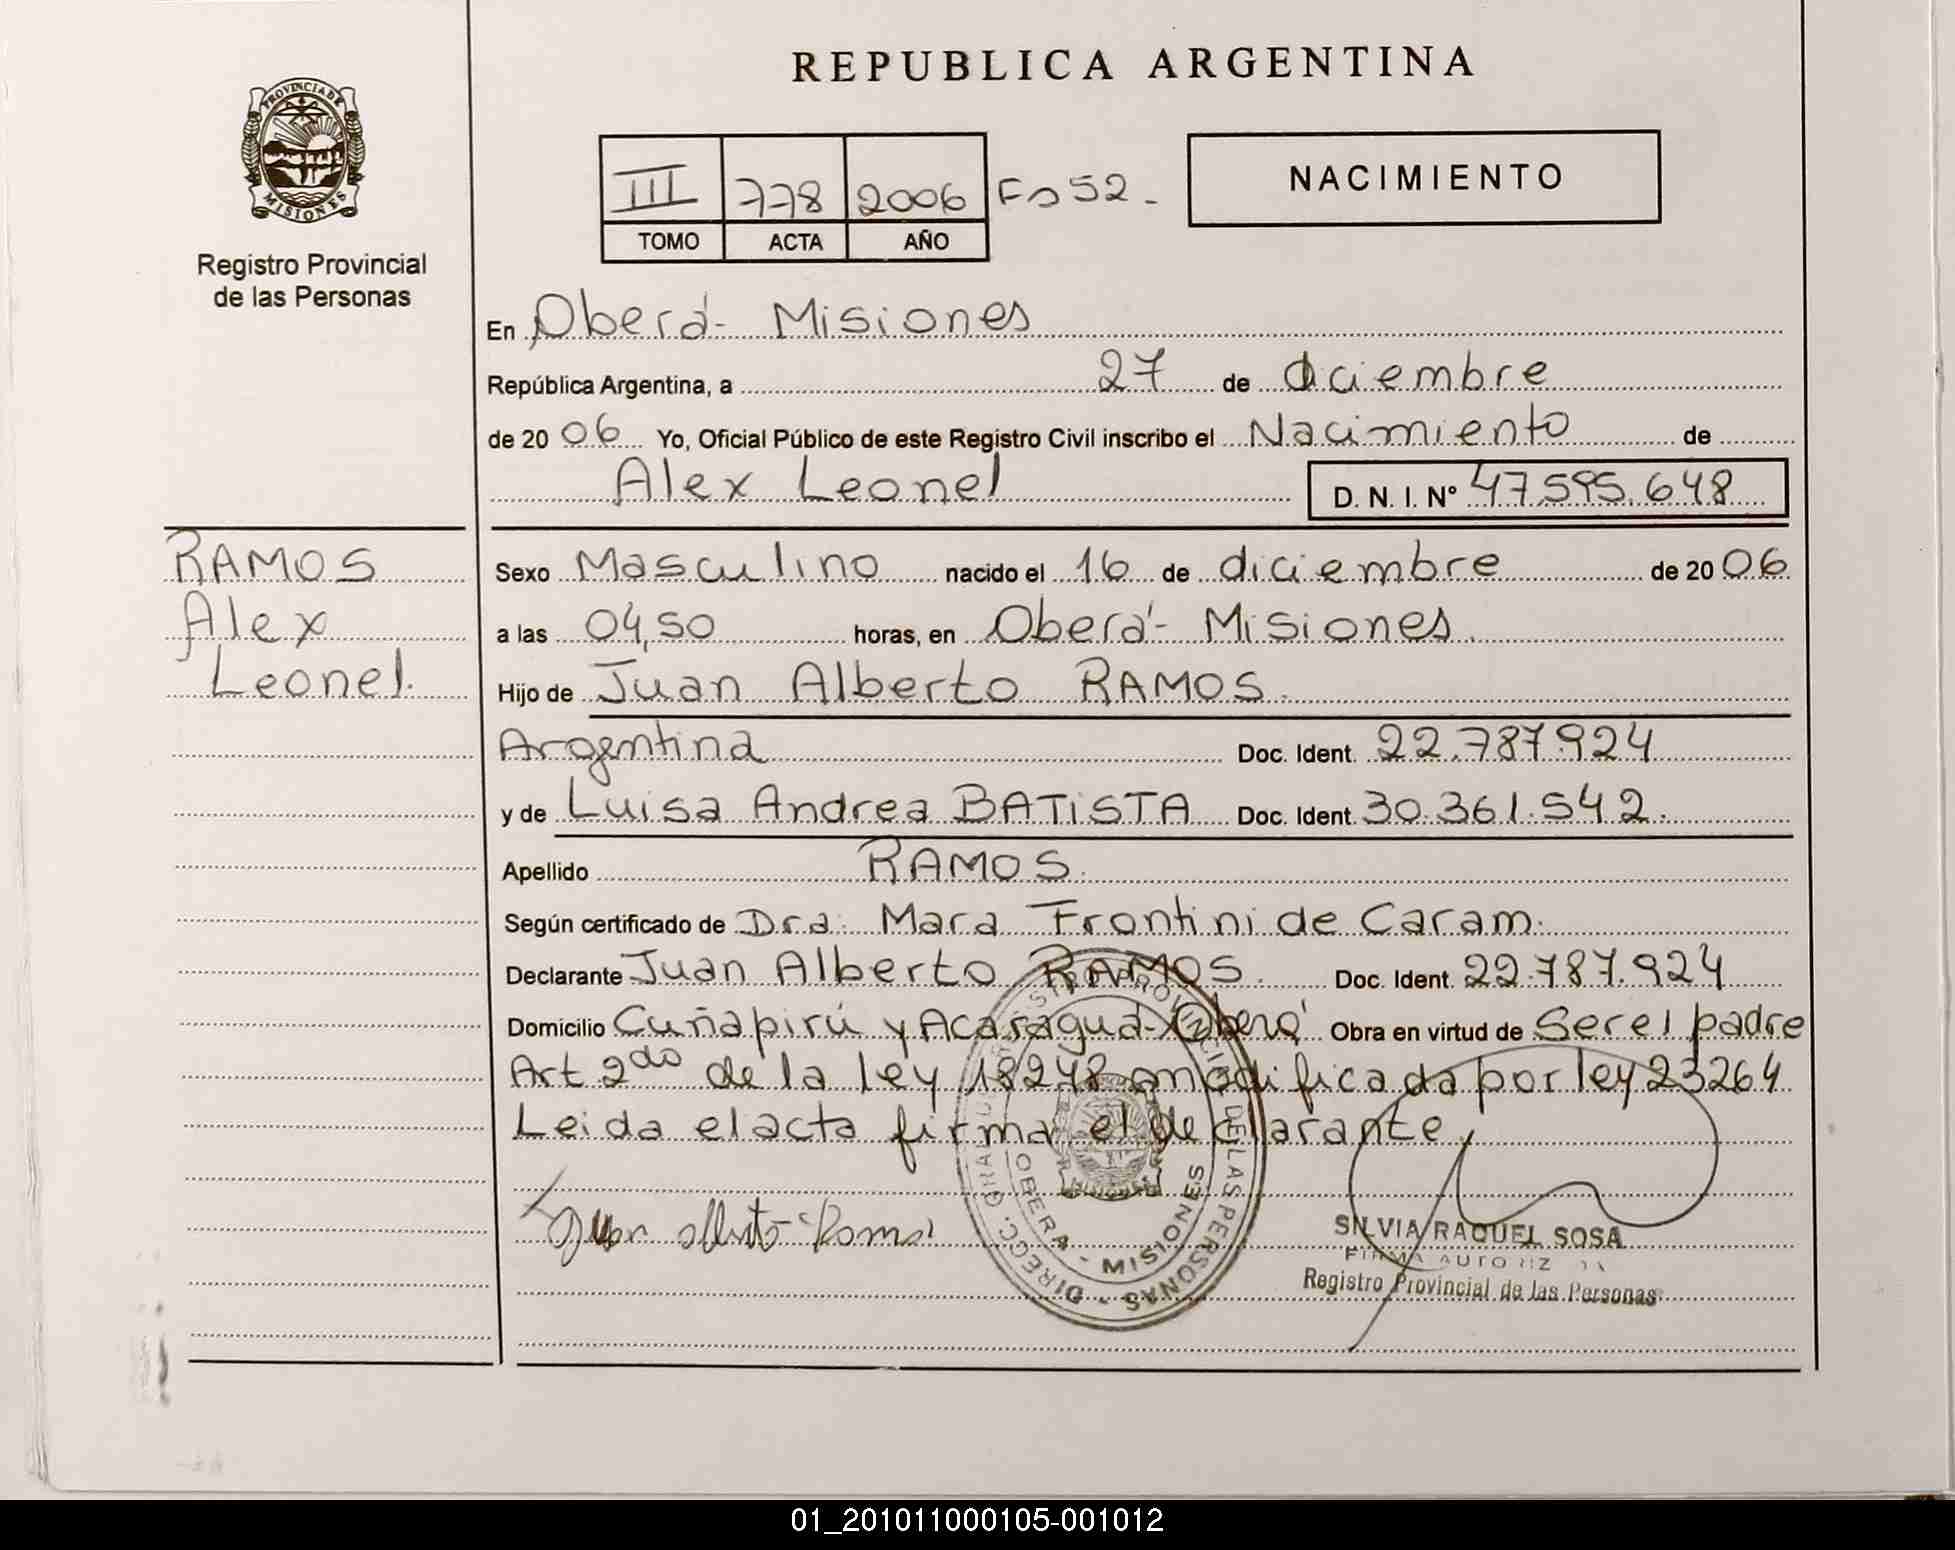 REPUBLICA ARGENTINA
PROVINCIA DE
MISIONES
Registro Provincial
de las Personas
III 778 2006 Fo 52.-
TOMO ACTA AÑO
NACIMIENTO
En Oberá- Misiones
República Argentina, a 27 de diciembre
de 20 06 Yo, Oficial Público de este Registro Civil inscribo el Nacimiento de
Alex Leonel D. N. I. Nº 47.595.648
RAMOS
Alex
Leonel.
Sexo Masculino nacido el 16 de diciembre de 20 06
a las 04,50 horas, en Oberá- Misiones.
Hijo de Juan Alberto RAMOS.
Argentina Doc. Ident. 22.787.924
y de Luisa Andrea BATiSTA Doc. Ident. 30.361.542.
Apellido RAMOS.
Según certificado de Dra. Mara Frontini de Caram.
Declarante Juan Alberto RAMOS. Doc. Ident. 22.787.924
Domicilio Cuñapirú y Acaragua- Oberá Obra en virtud de Ser el padre
Art 2do de la ley 18248 modificada por ley 23264
Leida el acta firma el declarante,
Juan Alberto Ramos
OBERA - MISIONES
SILVIA RAQUEL SOSA
FIRMA AUTORIZADA
Registro Provincial de las Personas
01_201011000105-001012